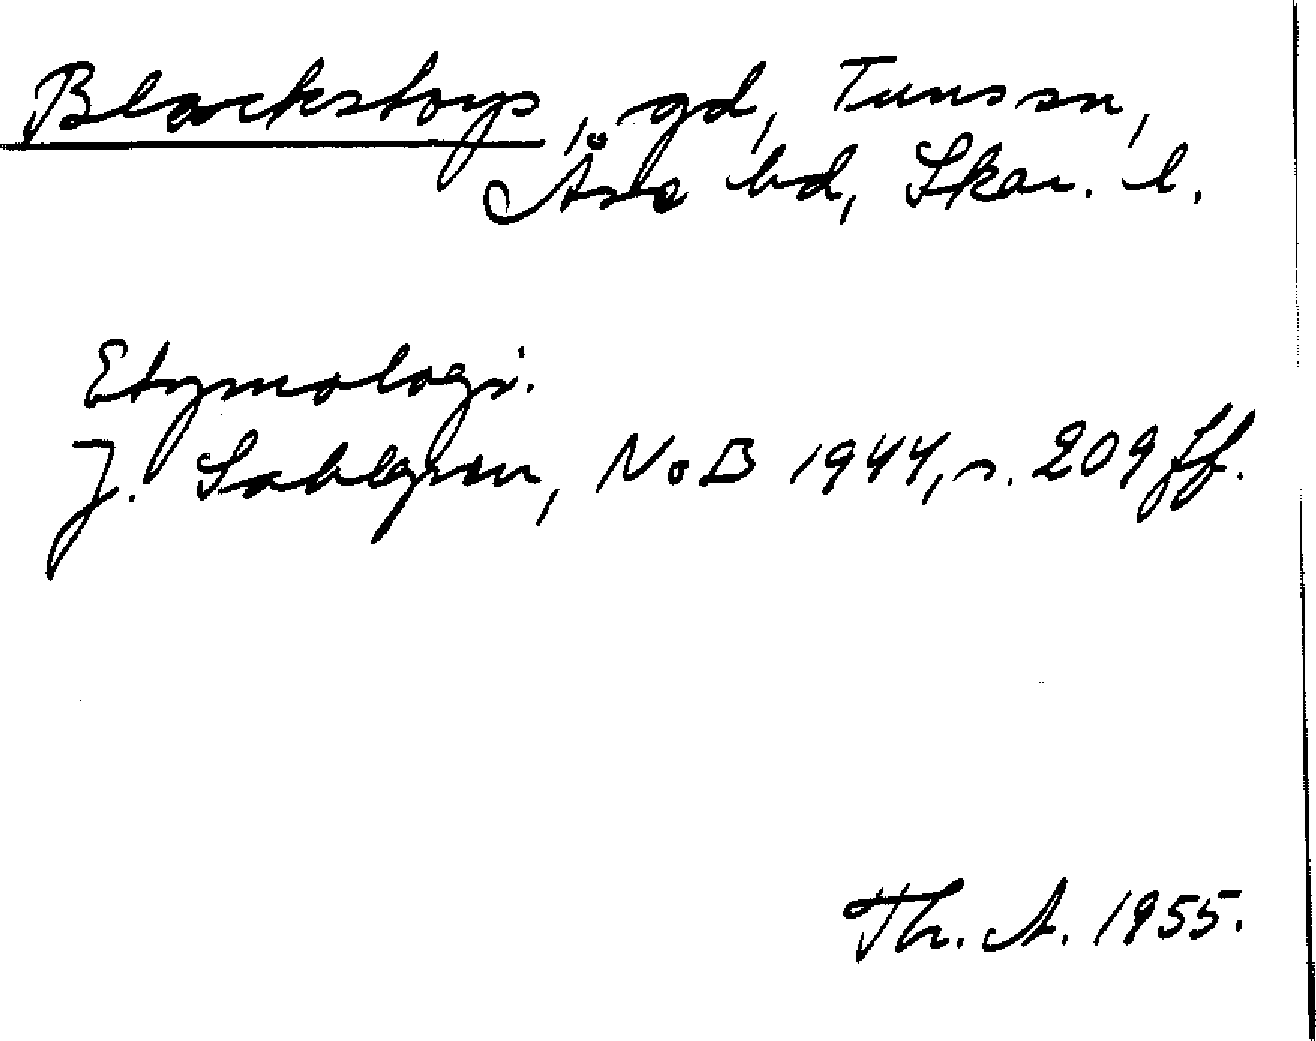 Blackstorp, gd, Tuns sn,
Åse hd, Skar. l.
Etymologi.
J. Sahlgren, NoB 1944, s. 209 ff.
Th. A. 1955.